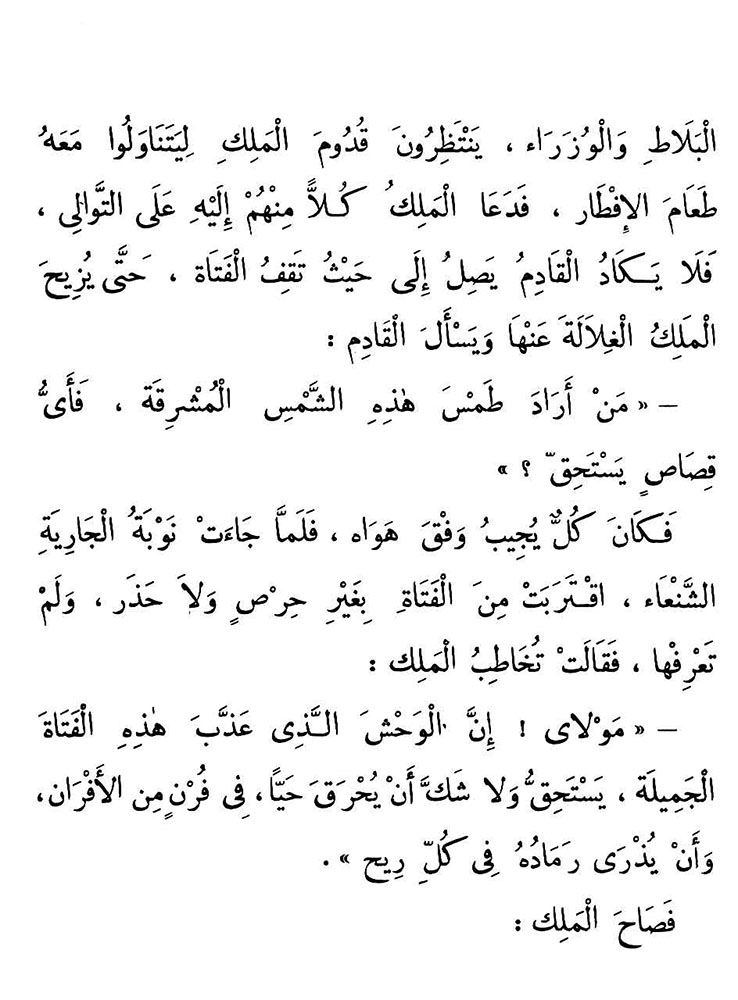 الْبَلَاطِ وَالْوُزَرَاء ، يَنْتَظِرُونَ قُدُومَ الْمَلِكِ لِيَتَنَاوَلُوا مَعَهُ
طَعَامَ الإِفْطَار ، فَدَعَا الْمَلِكُ كُلاًّ مِنْهُمْ إِلَيْهِ عَلَى التَّوَالِى ،
فَلَا يَكَادُ الْقَادِمُ يَصِلُ إِلَى حَيْثُ تَقِفُ الْفَتَاة ، حَتَّى يُزِيحَ
الْمَلِكُ الْغِلَالَةَ عَنْهَا وَيَسْأَلَ الْقَادِم :
– « مَنْ أَرَادَ طَمْسَ هٰذِهِ الشَّمْسِ الْمُشْرِقَة ، فَأَىُّ
قِصَاصٍ يَسْتَحِقّ ؟ »
فَكَانَ كُلٌّ يُجِيبُ وَفْقَ هَوَاه ، فَلَمَّا جَاءَتْ نَوْبَةُ الْجَارِيَةِ
الشَّنْعَاء ، اقْتَرَبَتْ مِنَ الْفَتَاةِ بِغَيْرِ حِرْصٍ وَلاَ حَذَر ، وَلَمْ
تَعْرِفْها ، فَقَالَتْ تُخَاطِبُ الْمَلِك :
– « مَوْلاى ! إِنَّ الْوَحْشَ الَّذِى عَذَّبَ هٰذِهِ الْفَتَاةَ
الْجَمِيلَة ، يَسْتَحِقُّ وَلا شَكَّ أَنْ يُحْرَقَ حَيًّا، فِى فُرْنٍ مِن الأَفْرَان،
وَأَنْ يُذْرَى رَمَادُهُ فِى كُلِّ رِيح » .
فَصَاحَ الْمَلِك :